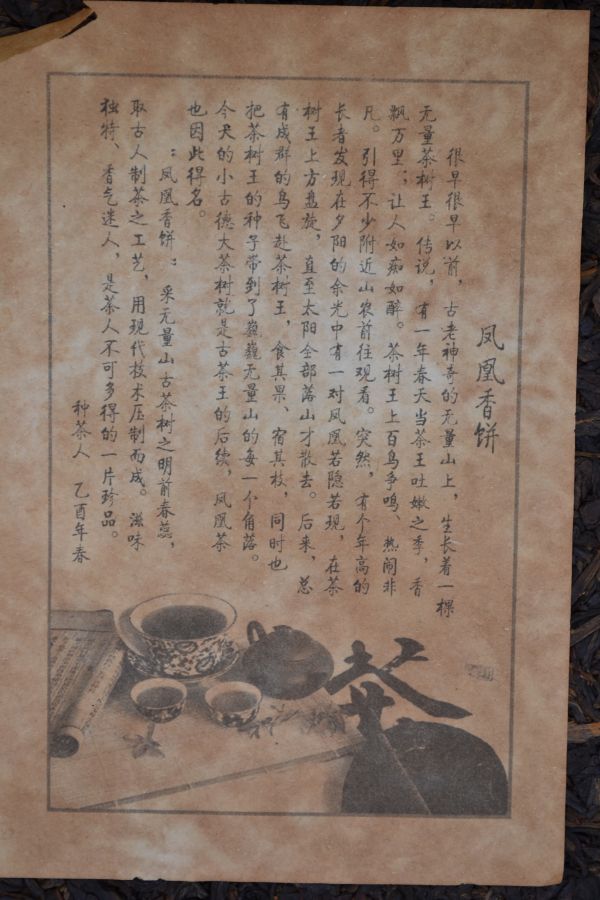 凤凰香饼
很早很早以前，古老神奇的无量山上，生长着一棵
无量茶树王。传说，有一年春天当茶王吐嫩之季，香
飘万里；让人如痴如醉。茶树王上百鸟争鸣、热闹非
凡。引得不少附近山农前往观看。突然，有个年高的
长者发现在夕阳的余光中有一对凤凰若隐若现，在茶
树王上方盘旋，直至太阳全部落山才散去。后来，总
有成群的鸟飞赴茶树王，食其果、宿其枝，同时也
把茶树王的种子带到了巍巍无量山的每一个角落。
今天的小古德大茶树就是古茶王的后续，凤凰茶
也因此得名。
：凤凰香饼：采无量山古茶树之明前春蕊，
取古人制茶之工艺，用现代技术压制而成。滋味
独特、香气迷人，是茶人不可多得的一片珍品。
种茶人 乙酉年春
茶